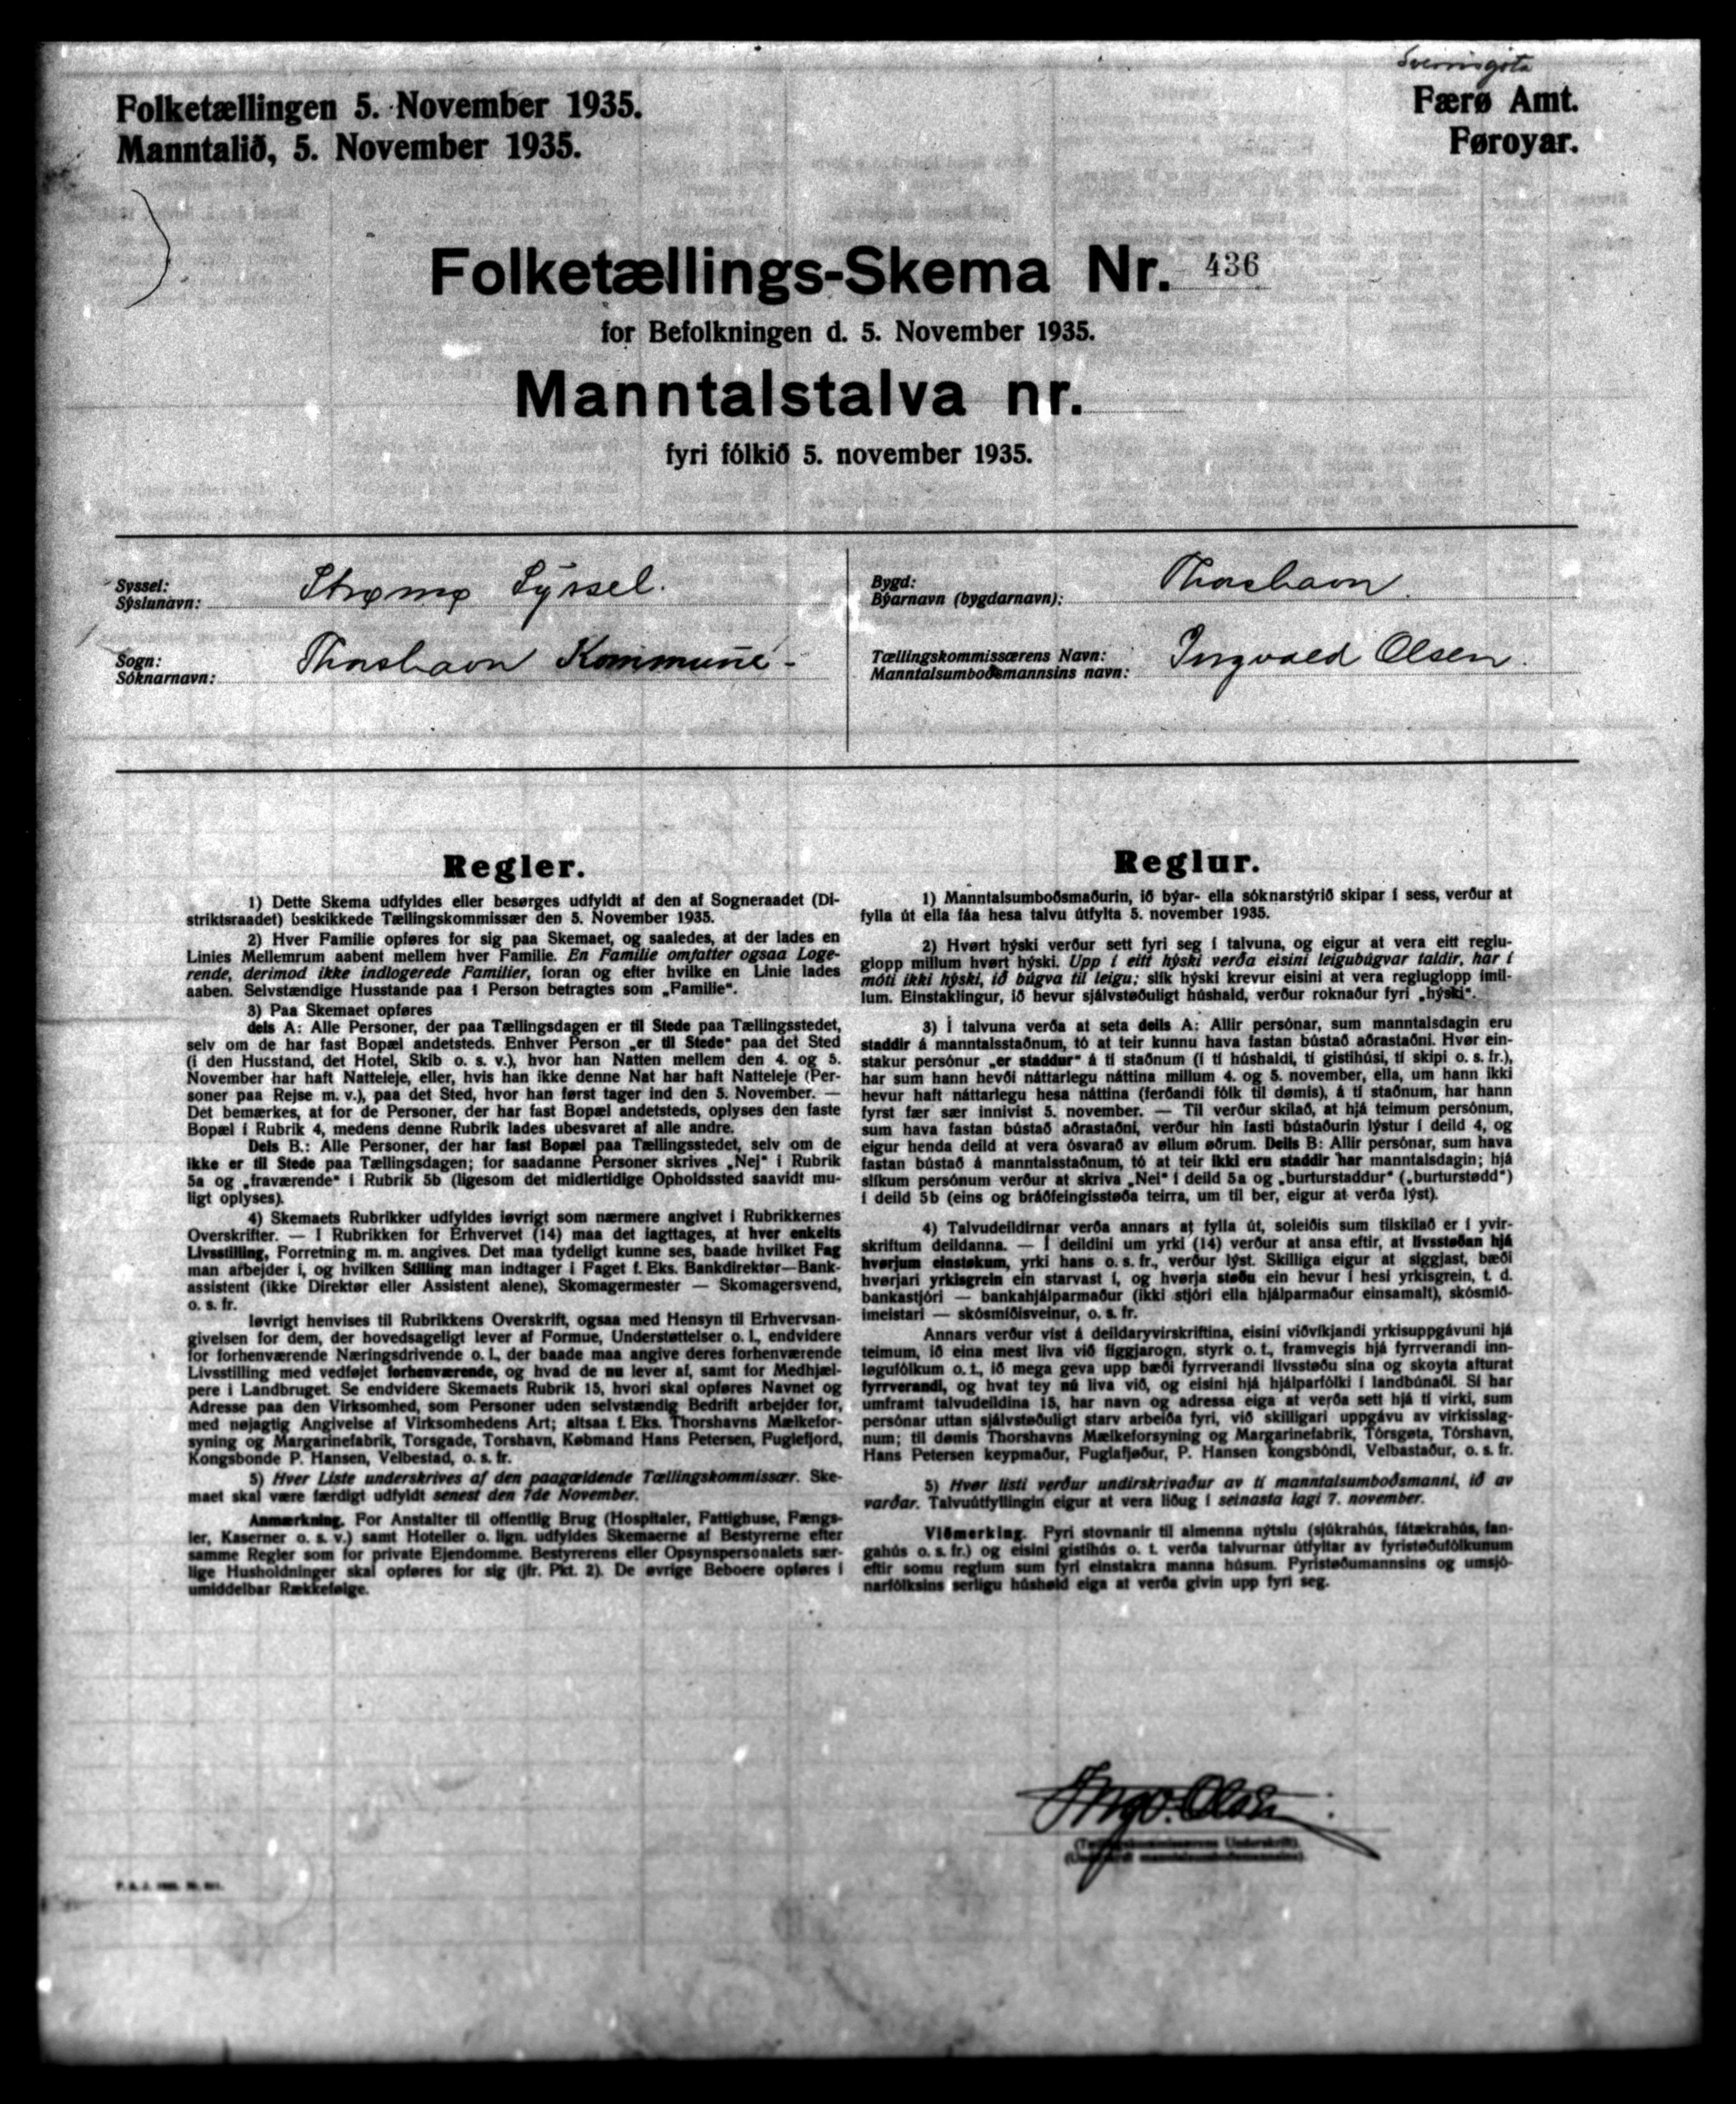 Sverrisgøta
Folketællingen 5. November 1935.
Manntalið, 5. November 1935.
Færø Amt.
Føroyar.
Folketællings-Skema Nr. 436
for Befolkningen d. 5. November 1935.
Manntalstalva nr.
fyri fólkið 5. november 1935.
Syssel:
Sýslunavn:
Strømø Syssel.
Sogn:
Sóknarnavn:
Thorshavn Kommune -
Bygd:
Býarnavn (bygdarnavn):
Thorshavn.
Tællingskommissærens Navn:
Manntalsumboðsmannsins navn:
Ingvald Olsen.
Regler.
1) Dette Skema udfyldes eller besørges udfyldt af den af Sogneraadet (Di-
striktsraadet) beskikkede Tællingskommissær den 5. November 1935.
2) Hver Familie opføres for sig paa Skemaet, og saaledes, at der lades en
Linies Mellemrum aabent mellem hver Familie. En Familie omfatter ogsaa Loge-
rende, derimod ikke indlogerede Familier, foran og efter hvilke en Linie lades
aaben. Selvstændige Husstande paa 1 Person betragtes som „Familie“.
3) Paa Skemaet opføres
dels A: Alle Personer, der paa Tællingsdagen er til Stede paa Tællingsstedet,
selv om de har fast Bopæl andetsteds. Enhver Person „er til Stede“ paa det Sted
(i den Husstand, det Hotel, Skib o. s. v.), hvor han Natten mellem den 4. og 5.
November har haft Natteleje, eller, hvis han ikke denne Nat har haft Natteleje (Per-
soner paa Rejse m. v.), paa det Sted, hvor han først tager ind den 5. November. —
Det bemærkes, at for de Personer, der har fast Bopæl andetsteds, oplyses den faste
Bopæl i Rubrik 4, medens denne Rubrik lades ubesvaret af alle andre.
Dels B.: Alle Personer, der har fast Bopæl paa Tællingsstedet, selv om de
ikke er til Stede paa Tællingsdagen; for saadanne Personer skrives „Nej“ i Rubrik
5a og „fraværende“ i Rubrik 5b (ligesom det midlertidige Opholdssted saavidt mu-
ligt oplyses).
4) Skemaets Rubrikker udfyldes iøvrigt som nærmere angivet i Rubrikkernes
Overskrifter. — I Rubrikken for Erhvervet (14) maa det iagttages, at hver enkelts
Livsstilling, Forretning m. m. angives. Det maa tydeligt kunne ses, baade hvilket Fag
man arbejder i, og hvilken Stilling man indtager i Faget f. Eks. Bankdirektør—Bank-
assistent (ikke Direktør eller Assistent alene), Skomagermester — Skomagersvend,
o. s. fr.
Iøvrigt henvises til Rubrikkens Overskrift, ogsaa med Hensyn til Erhvervsan-
givelsen for dem, der hovedsageligt lever af Formue, Understøttelser o. l., endvidere
for forhenværende Næringsdrivende o. l., der baade maa angive deres forhenværende
Livsstilling med vedføjet forhenværende, og hvad de nu lever af, samt for Medhjæl-
pere i Landbruget. Se endvidere Skemaets Rubrik 15, hvori skal opføres Navnet og
Adresse paa den Virksomhed, som Personer uden selvstændig Bedrift arbejder for,
med nøjagtig Angivelse af Virksomhedens Art; altsaa f. Eks. Thorshavns Mælkefor-
syning og Margarinefabrik, Torsgade, Torshavn, Købmand Hans Petersen, Fuglefjord,
Kongsbonde P. Hansen, Velbestad, o. s. fr.
5) Hver Liste underskrives af den paagældende Tællingskommissær. Ske-
maet skal være færdigt udfyldt senest den 7de November.
Anmærkning. For Anstalter til offentlig Brug (Hospitaler, Fattighuse, Fængs-
ler, Kaserner o. s. v.) samt Hoteller o. lign. udfyldes Skemaerne af Bestyrerne efter
samme Regler som for private Ejendomme. Bestyrerens eller Opsynspersonalets sær-
lige Husholdninger skal opføres for sig (jfr. Pkt. 2). De øvrige Beboere opføres i
umiddelbar Rækkefølge.
Reglur.
1) Manntalsumboðsmaðurin, ið býar- ella sóknarstýrið skipar í sess, verður at
fylla út ella fáa hesa talvu útfylta 5. november 1935.
2) Hvørt hýski verður sett fyri seg í talvuna, og eigur at vera eitt reglu-
glopp millum hvørt hýski. Upp í eitt hýski verða eisini leigubúgvar taldir, har í
móti ikki hýski, ið búgva til leigu; slík hýski krevur eisini at vera regluglopp ímil-
lum. Einstaklingur, ið hevur sjálvstøðuligt húshald, verður roknaður fyri „hýski“.
3) Í talvuna verða at seta deils A: Allir persónar, sum manntalsdagin eru
staddir á manntalsstaðnum, tó at teir kunnu hava fastan bústað aðrastaðni. Hvør ein-
stakur persónur „er staddur“ á tí staðnum (í tí húshaldi, tí gistihúsi, tí skipi o. s. fr.),
har sum hann hevði náttarlegu náttina millum 4. og 5. november, ella, um hann ikki
hevur haft náttarlegu hesa náttina (ferðandi fólk til dømis), á tí staðnum, har hann
fyrst fær sær innivist 5. november. — Til verður skilað, at hjá teimum persónum,
sum hava fastan bústað aðrastaðni, verður hin fasti bústaðurin lýstur í deild 4, og
eigur henda deild at vera ósvarað av øllum øðrum. Deils B: Allir persónar, sum hava
fastan bústað á manntalsstaðnum, tó at teir ikki eru staddir har manntalsdagin; hjá
slíkum persónum verður at skriva „Nei“ í deild 5a og „burturstaddur“ („burturstødd“)
í deild 5b (eins og bráðfeingisstøða teirra, um til ber, eigur at verða lýst).
4) Talvudeildirnar verða annars at fylla út, soleiðis sum tilskilað er í yvir-
skriftum deildanna. — Í deildini um yrki (14) verður at ansa eftir, at livsstøðan hjá
hvørjum einstøkum, yrki hans o. s. fr., verður lýst. Skilliga eigur at siggjast, bæði
hvørjari yrkisgrein ein starvast í, og hvørja støðu ein hevur í hesi yrkisgrein, t. d.
bankastjóri — bankahjálparmaður (ikki stjóri ella hjálparmaður einsamalt), skósmið-
imeistari — skósmiðisveinur, o. s. fr.
Annars verður víst á deildaryvirskriftina, eisini viðvíkjandi yrkisuppgávuni hjá
teimum, ið eina mest liva við figgjarogn, styrk o. t., framvegis hjá fyrrverandi inn-
løgufólkum o. t., ið mega geva upp bæði fyrrverandi livsstøðu sína og skoyta afturat
fyrrverandi, og hvat tey nú liva við, og eisini hjá hjálparfólki í landbúnaði. Sí har
umframt talvudeildina 15, har navn og adressa eiga at verða sett hjá tí virki, sum
persónar uttan sjálvstøðuligt starv arbeiða fyri, við skilligari uppgávu av virkisslag-
num; til dømis Thorshavns Mælkeforsyning og Margarinefabrik, Tórsgøta, Tórshavn,
Hans Petersen keypmaður, Fuglafjøður, P. Hansen kongsbóndi, Velbastaður, o. s. fr.
5) Hvør listi verður undirskrivaður av tí manntalsumboðsmanni, ið av
varðar. Talvuútfyllingin eigur at vera liðug í seinasta lagi 7. november.
Viðmerking. Fyri stovnanir til almenna nýtslu (sjúkrahús, fátækrahús, fan-
gahús o. s. fr.) og eisini gistihús o. t. verða talvurnar útfyltar av fyristøðufólkunum
eftir somu reglum sum fyri einstakra manna húsum. Fyristøðumannsins og umsjó-
narfólksins serligu húshøld eiga at verða givin upp fyri seg.
Ingv. Olsen
(Tællingskommissærens Underskrift).